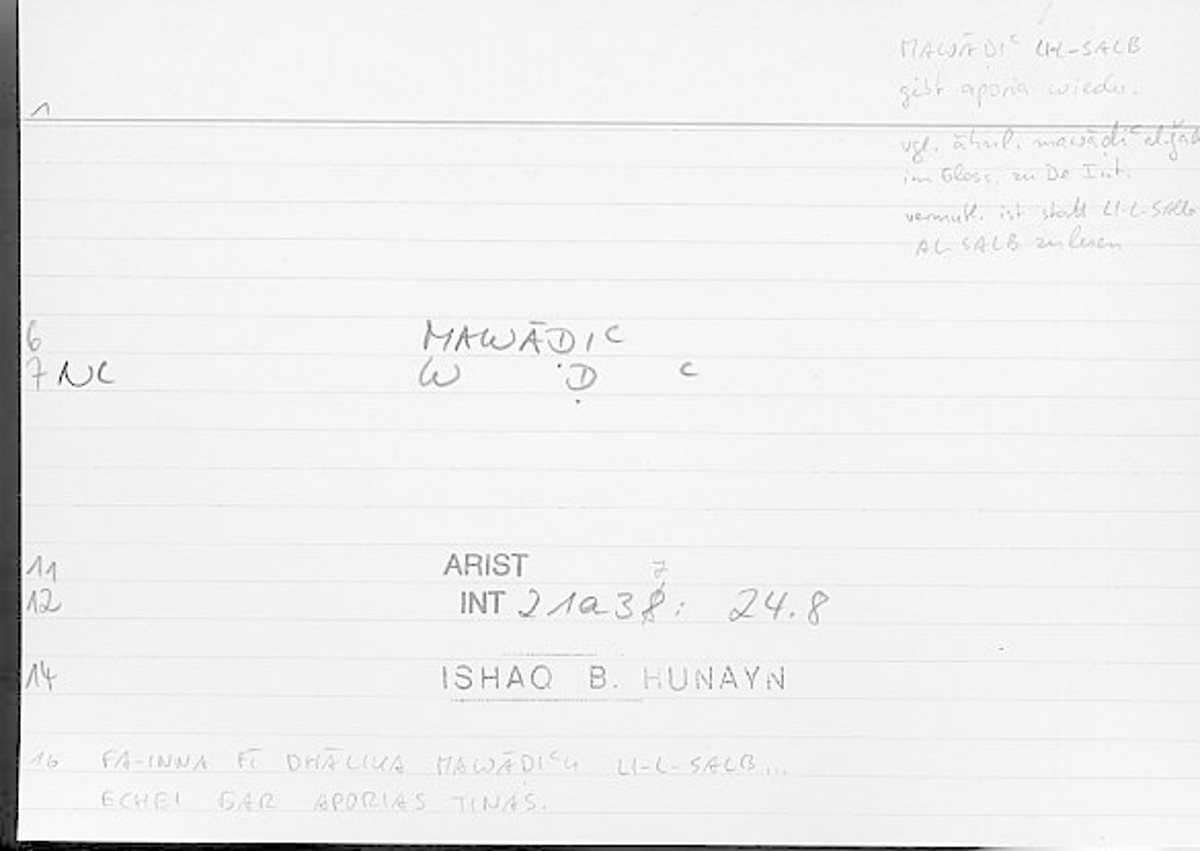 MAWĀDIᶜ LI-L-SALB
gibt aporia wieder.
1
vgl. ähnl. mawādiᶜ
im Gloss. zu De Int.
vermutl. ist statt LI-L-SALB
AL-SALB zu lesen
6 MAWĀDIᶜ
7 NC W Ḍ ᶜ
11 ARIST 7
12 INT 21a38: 24.8
14 ISHAQ B. HUNAYN
16 FA-INNA FĪ DHĀLIKA MAWĀḌIᶜU LI-L-SALB...
ECHEI GAR APORIAS TINAS.